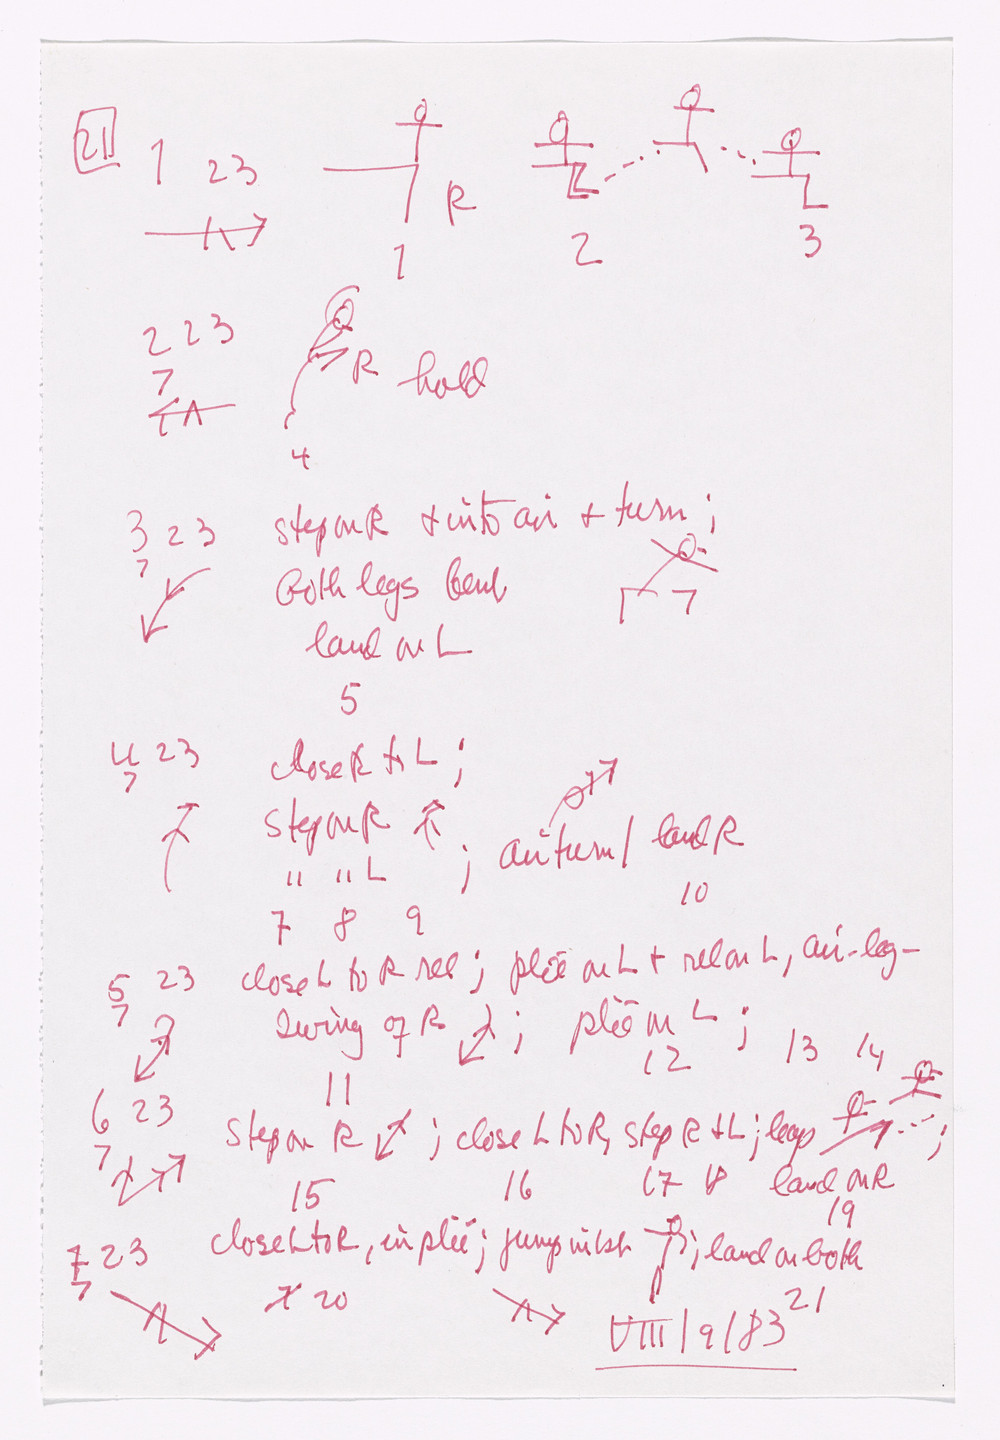 21
1 23 R
1 2 3
2 23 R hold
7
4
3 23 step on R + into air + turn ;
7 Both legs bent 7
land on L
5
4 23 close R to L ;
7
step on R ; air turn / land R
" " L
7 8 9 10
5 23 close L to R rel ; plié on L + rel on L, air-leg-
7 swing of R ; plié on L ;
11 12 13 14
6 23 step on R ; close L to R, step R + L ; leap ;
7 land on R
15 16 17 18 19
7 23 close L to R, in plié ; jump ; land on both
7 20 21
VIII / 9 / 83